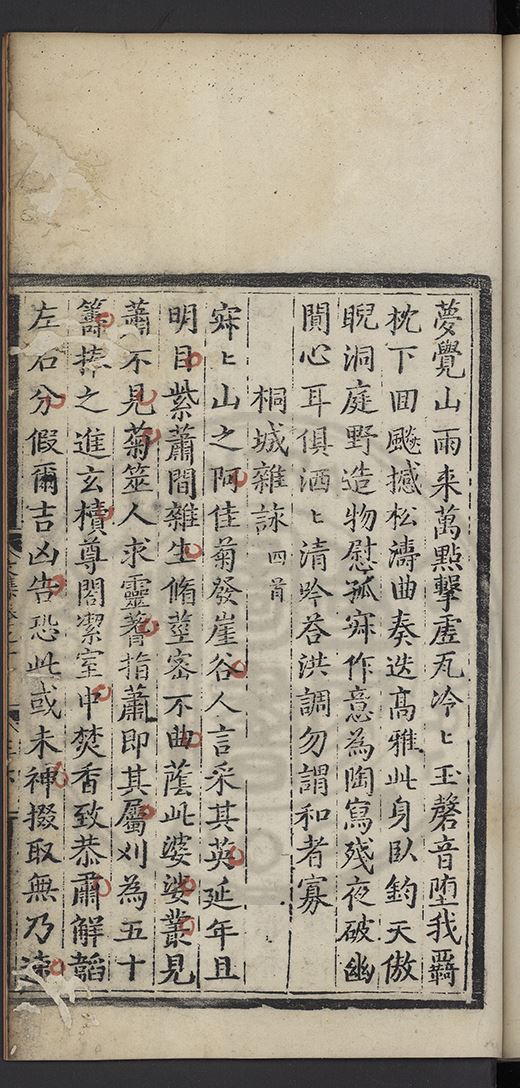 夢覺山雨来萬點擊虛瓦冷〻玉磬音堕我覊
枕下回飈撼松濤曲奏迭高雅此身臥鈞天傲
睨洞庭野造物慰孤寂作意為陶寫殘夜破幽
閴心耳俱洒〻清吟荅洪調勿謂和者寡
桐城雜詠四首
寂〻山之阿佳菊發崖谷人言采其英延年且
明目紫蕭間雜生脩莖密不曲蔭此婆娑叢見
蕭不見菊筮人求靈蓍指蕭即其屬刈為五十
籌捧之進玄櫝尊閣潔室中焚香致恭肅解韜
左右分假爾吉凶告恐此或未神掇取無乃速